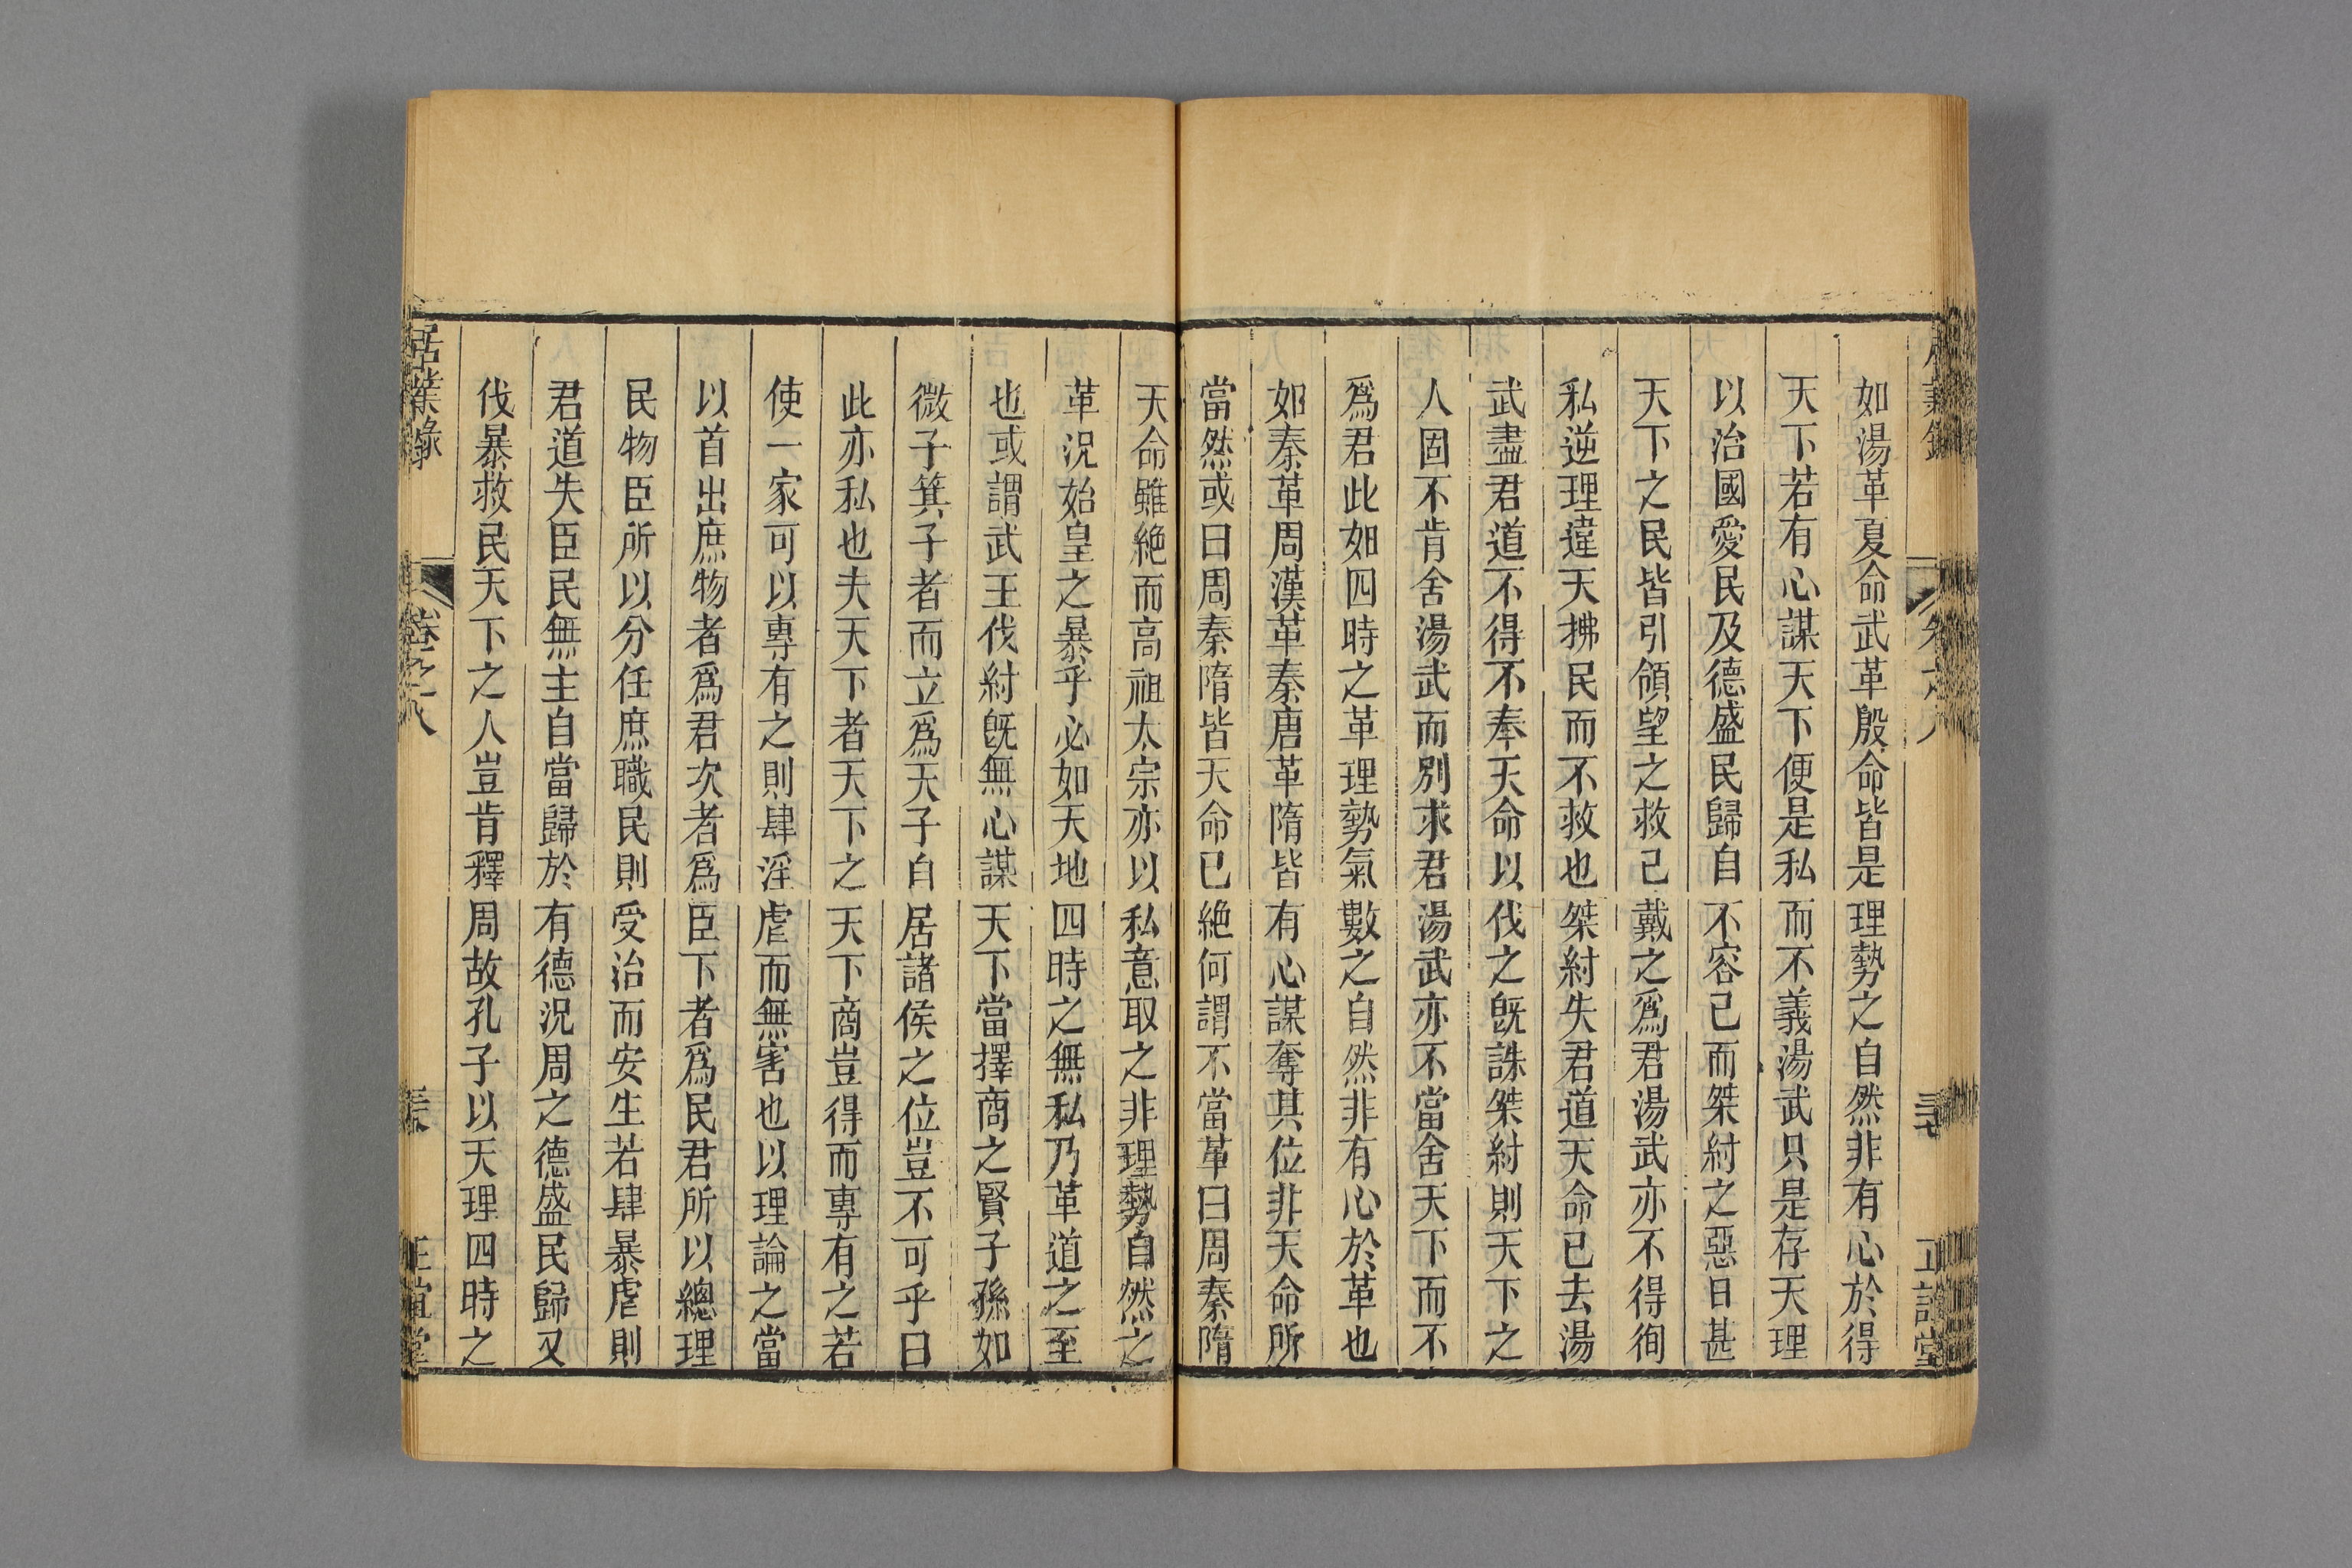 居業錄 卷之八 正誼堂
如湯革夏命武革殷命皆是理勢之自然非有心於得
天下若有心謀天下便是私而不義湯武只是存天理
以治國愛民及德盛民歸自不容已而桀紂之惡日甚
天下之民皆引領望之救己戴之爲君湯武亦不得徇
私逆理違天拂民而不救也桀紂失君道天命已去湯
武盡君道不得不奉天命以伐之旣誅桀紂則天下之
人固不肯舍湯武而別求君湯武亦不當舍天下而不
爲君此如四時之革理勢氣數之自然非有心於革也
如秦革周漢革秦唐革隋皆有心謀奪其位非天命所
當然或曰周秦隋皆天命已絕何謂不當革曰周秦隋
天命雖絕而高祖太宗亦以私意取之非理勢自然之
革況始皇之暴乎必如天地四時之無私乃革道之至
也或謂武王伐紂旣無心謀天下當擇商之賢子孫如
微子箕子者而立爲天子自居諸侯之位豈不可乎曰
此亦私也夫天下者天下之天下商豈得而專有之若
使一家可以專有之則肆淫虐而無害也以理論之當
以首出庶物者爲君次者爲臣下者爲民君所以總理
民物臣所以分任庶職民則受治而安生若肆暴虐則
君道失臣民無主自當歸於有德況周之德盛民歸又
伐暴救民天下之人豈肯釋周故孔子以天理四時之
居業錄 卷之八 正誼堂